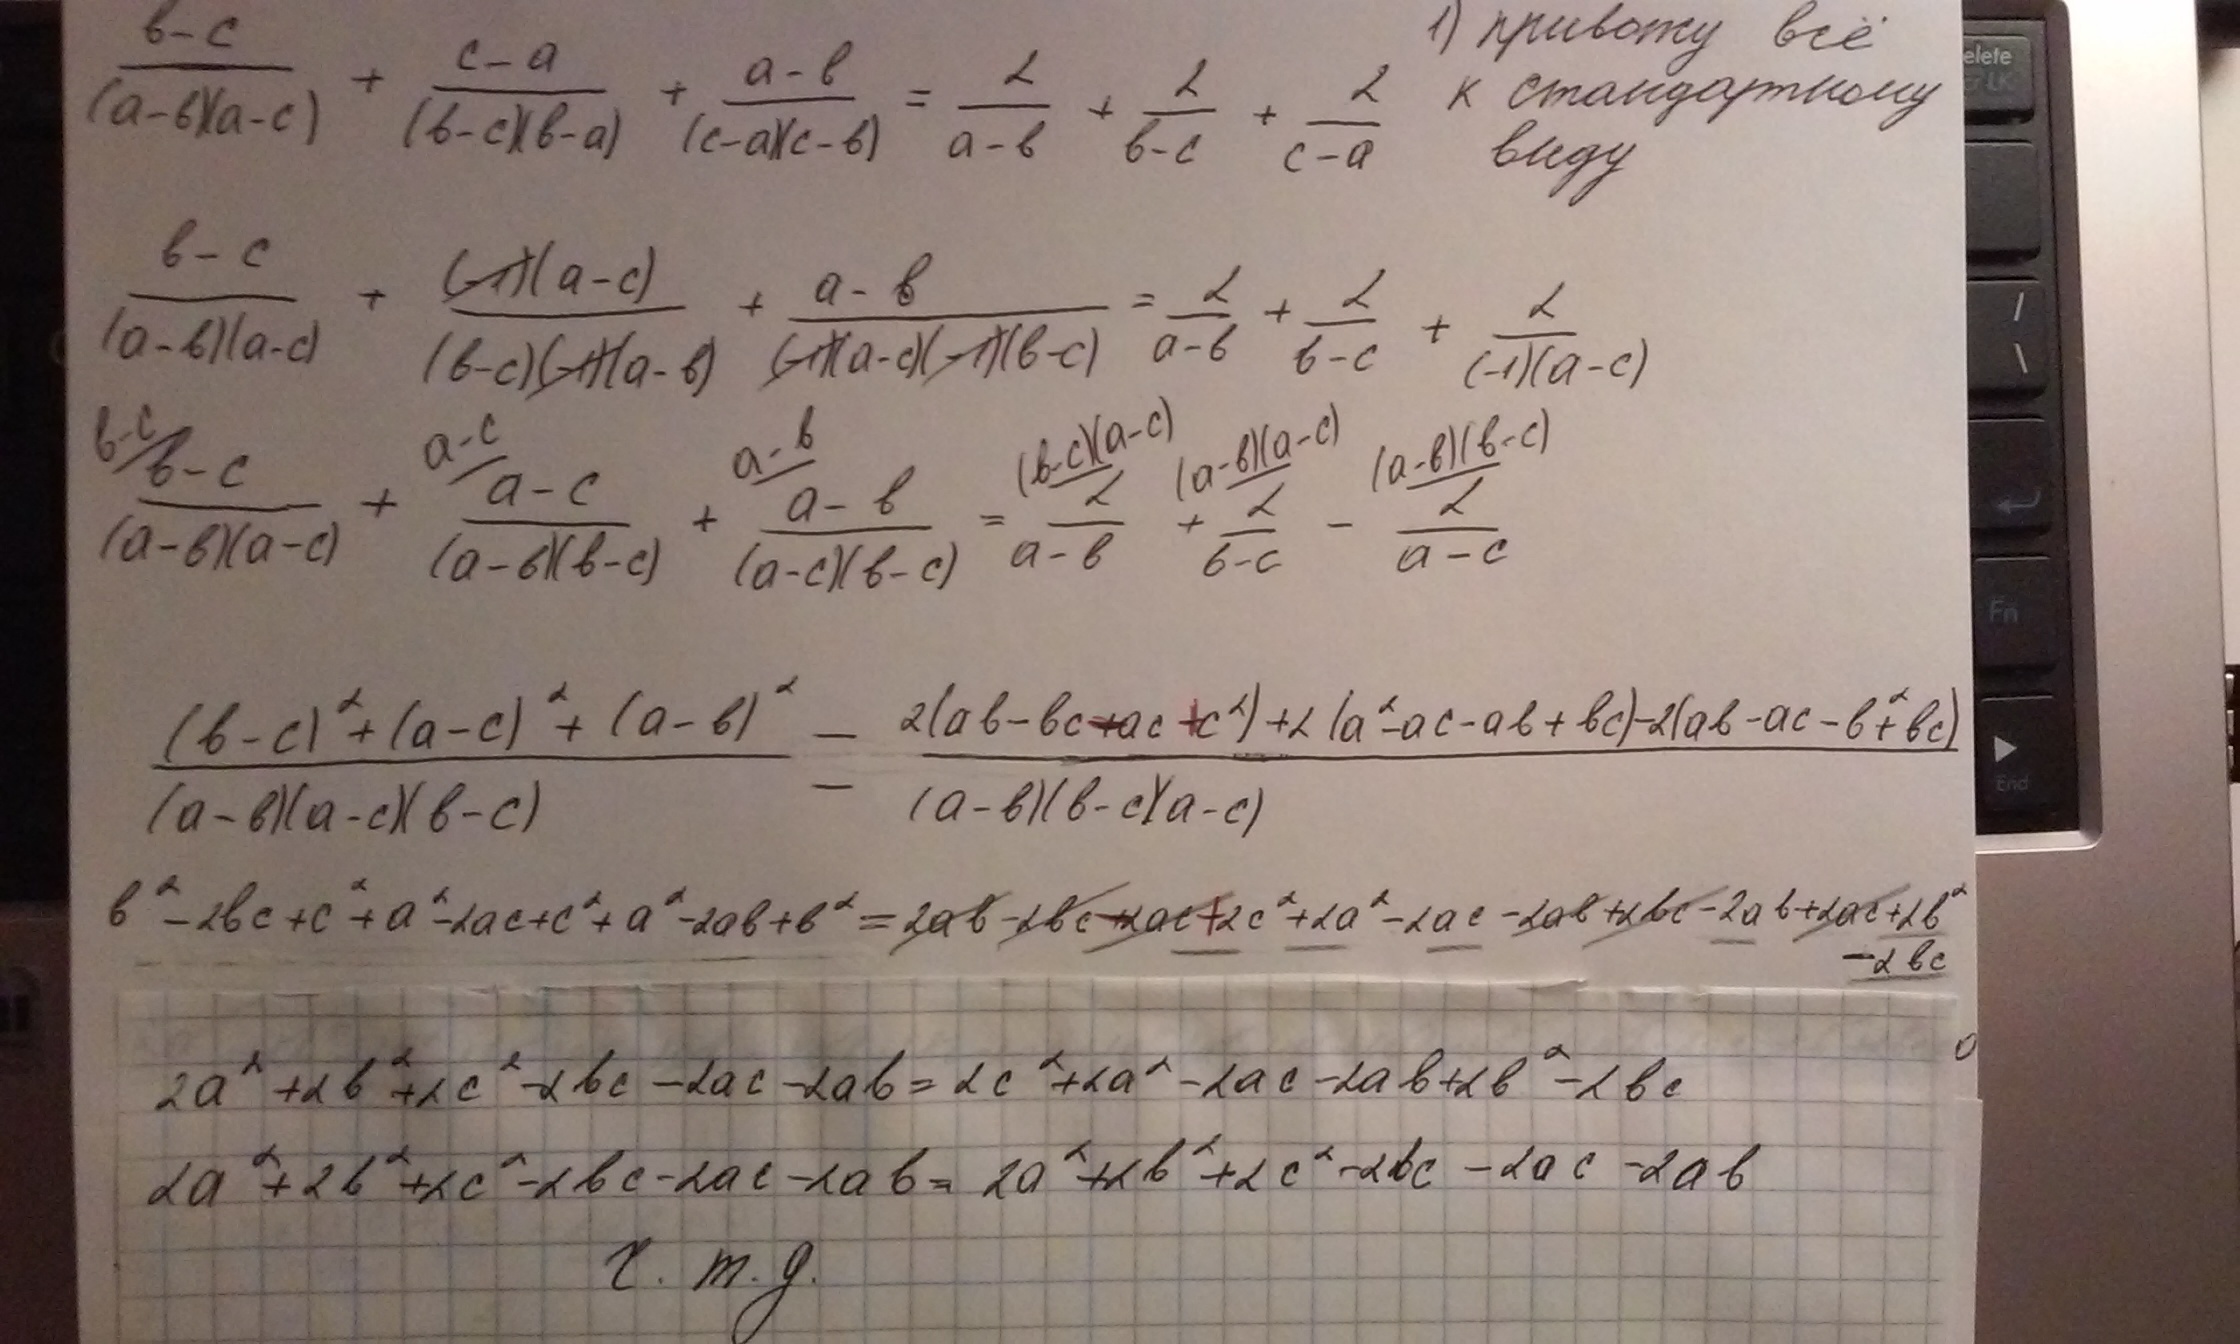 (b-c)/((a-b)(a-c)) + (c-a)/((b-c)(b-a)) + (a-b)/((c-a)(c-b)) = 2/(a-b) + 2/(b-c) + 2/(c-a)
1) привожу всё
к стандартному
виду
(b-c)/((a-b)(a-c)) + ((-1)(a-c))/((b-c)(-1)(a-b)) + (a-b)/((-1)(a-c)(-1)(b-c)) = 2/(a-b) + 2/(b-c) + 2/((-1)(a-c))
b-c/ a-c/ a-b/ (b-c)(a-c)/ (a-b)(a-c)/ (a-b)(b-c)/
(b-c)/((a-b)(a-c)) + (a-c)/((a-b)(b-c)) + (a-b)/((a-c)(b-c)) = 2/(a-b) + 2/(b-c) - 2/(a-c)
((b-c)²+(a-c)²+(a-b)²)/((a-b)(a-c)(b-c)) = (2(ab-bc-ac+c²)+2(a²-ac-ab+bc)-2(ab-ac-b²+bc))/((a-b)(b-c)(a-c))
b²-2bc+c²+a²-2ac+c²+a²-2ab+b²=2ab-2bc-2ac+2c²+2a²-2ac-2ab+2bc-2ab+2ac+2b²
-2bc
2a²+2b²+2c²-2bc-2ac-2ab=2c²+2a²-2ac-2ab+2b²-2bc
2a²+2b²+2c²-2bc-2ac-2ab=2a²+2b²+2c²-2bc-2ac-2ab
ч.т.д.
elete
Fn
End